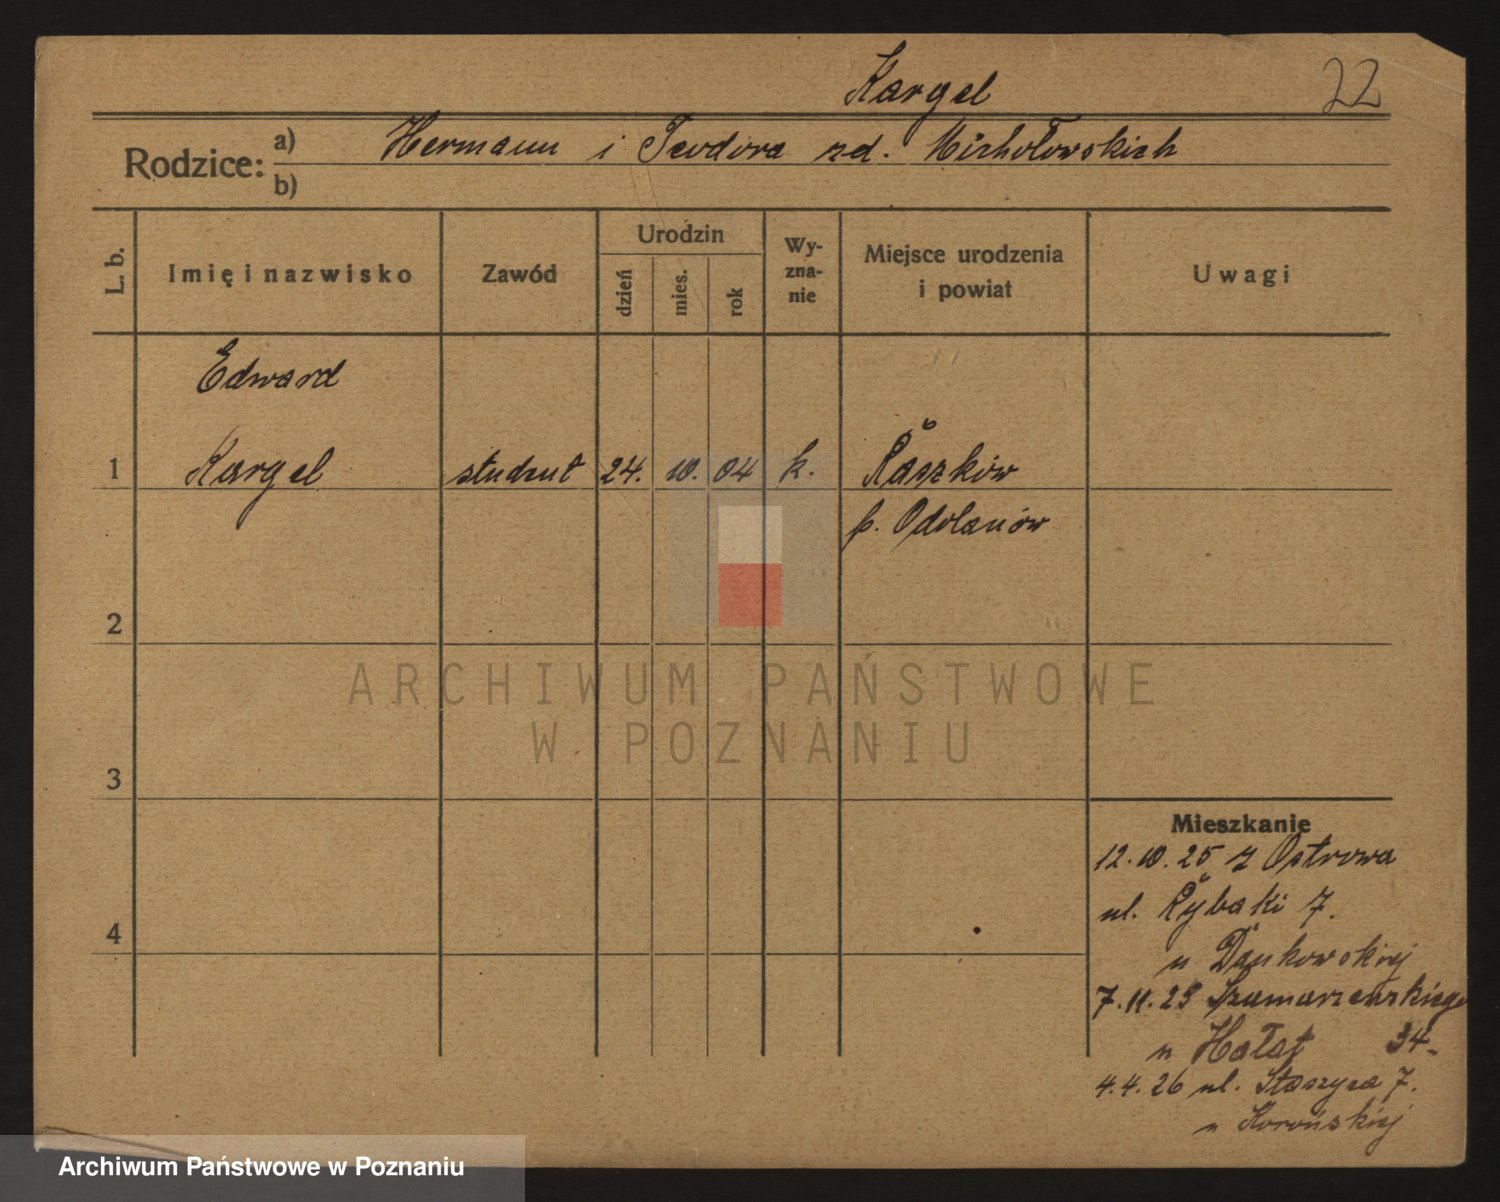 Kargel 22
Rodzice:
a) Hermann i Teodora zd. Michołowskich
b)
L. b.
Imię i nazwisko
Zawód
Urodzin
dzień
mies.
rok
Wy-
zna-
nie
Miejsce urodzenia
i powiat
Uwagi
Edward
1 Kargel student 24. 10. 04 k. Raszków
p. Odolanów
2
3
4
Mieszkanie
12.10.25 z Ostrowa
ul. Rybaki 7.
u Dankowskiej
7.11.25 Szamarzewskiego
u Hałas 34.
4.4.26 ul. Staszyca 7.
u Korońskiej
ARCHIWUM PAŃSTWOWE
W POZNANIU
Archiwum Państwowe w Poznaniu